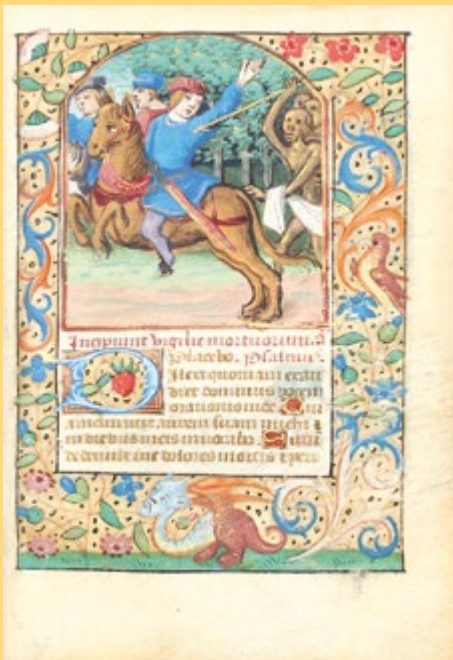 Incipiunt vigilie mortuorum.
Placebo. Psalmus
Dilexi quoniam exau
diet dominus vocem
orationis mee. Qui
a inclinavit aurem suam michi
in diebus meis invocabo.
dederunt me dolores mortis et peri